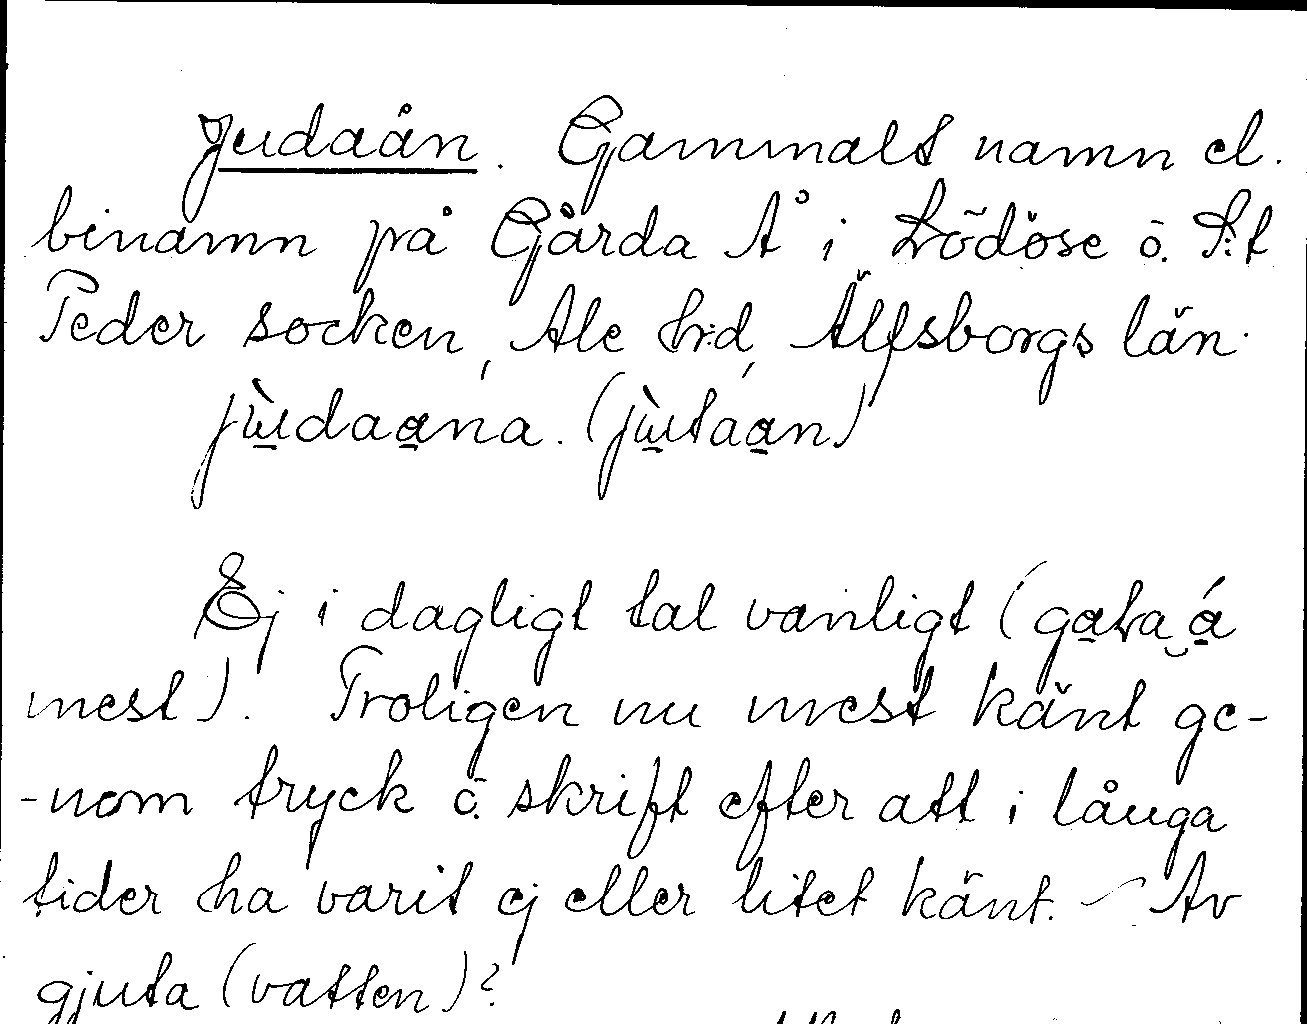 Judaån. Gammalt namn el.
binamn på Gårda Å i Lödöse o. S:t
Peder socken, Ale h:d, Älfsborgs län.
jùdaana. (jùtáan)
Ej i dagligt tal vanligt (
mest). Troligen nu mest känt ge-
-nom tryck o. skrift efter att i långa
tider ha varit ej eller litet känt. – Av
gjuta (vatten)?